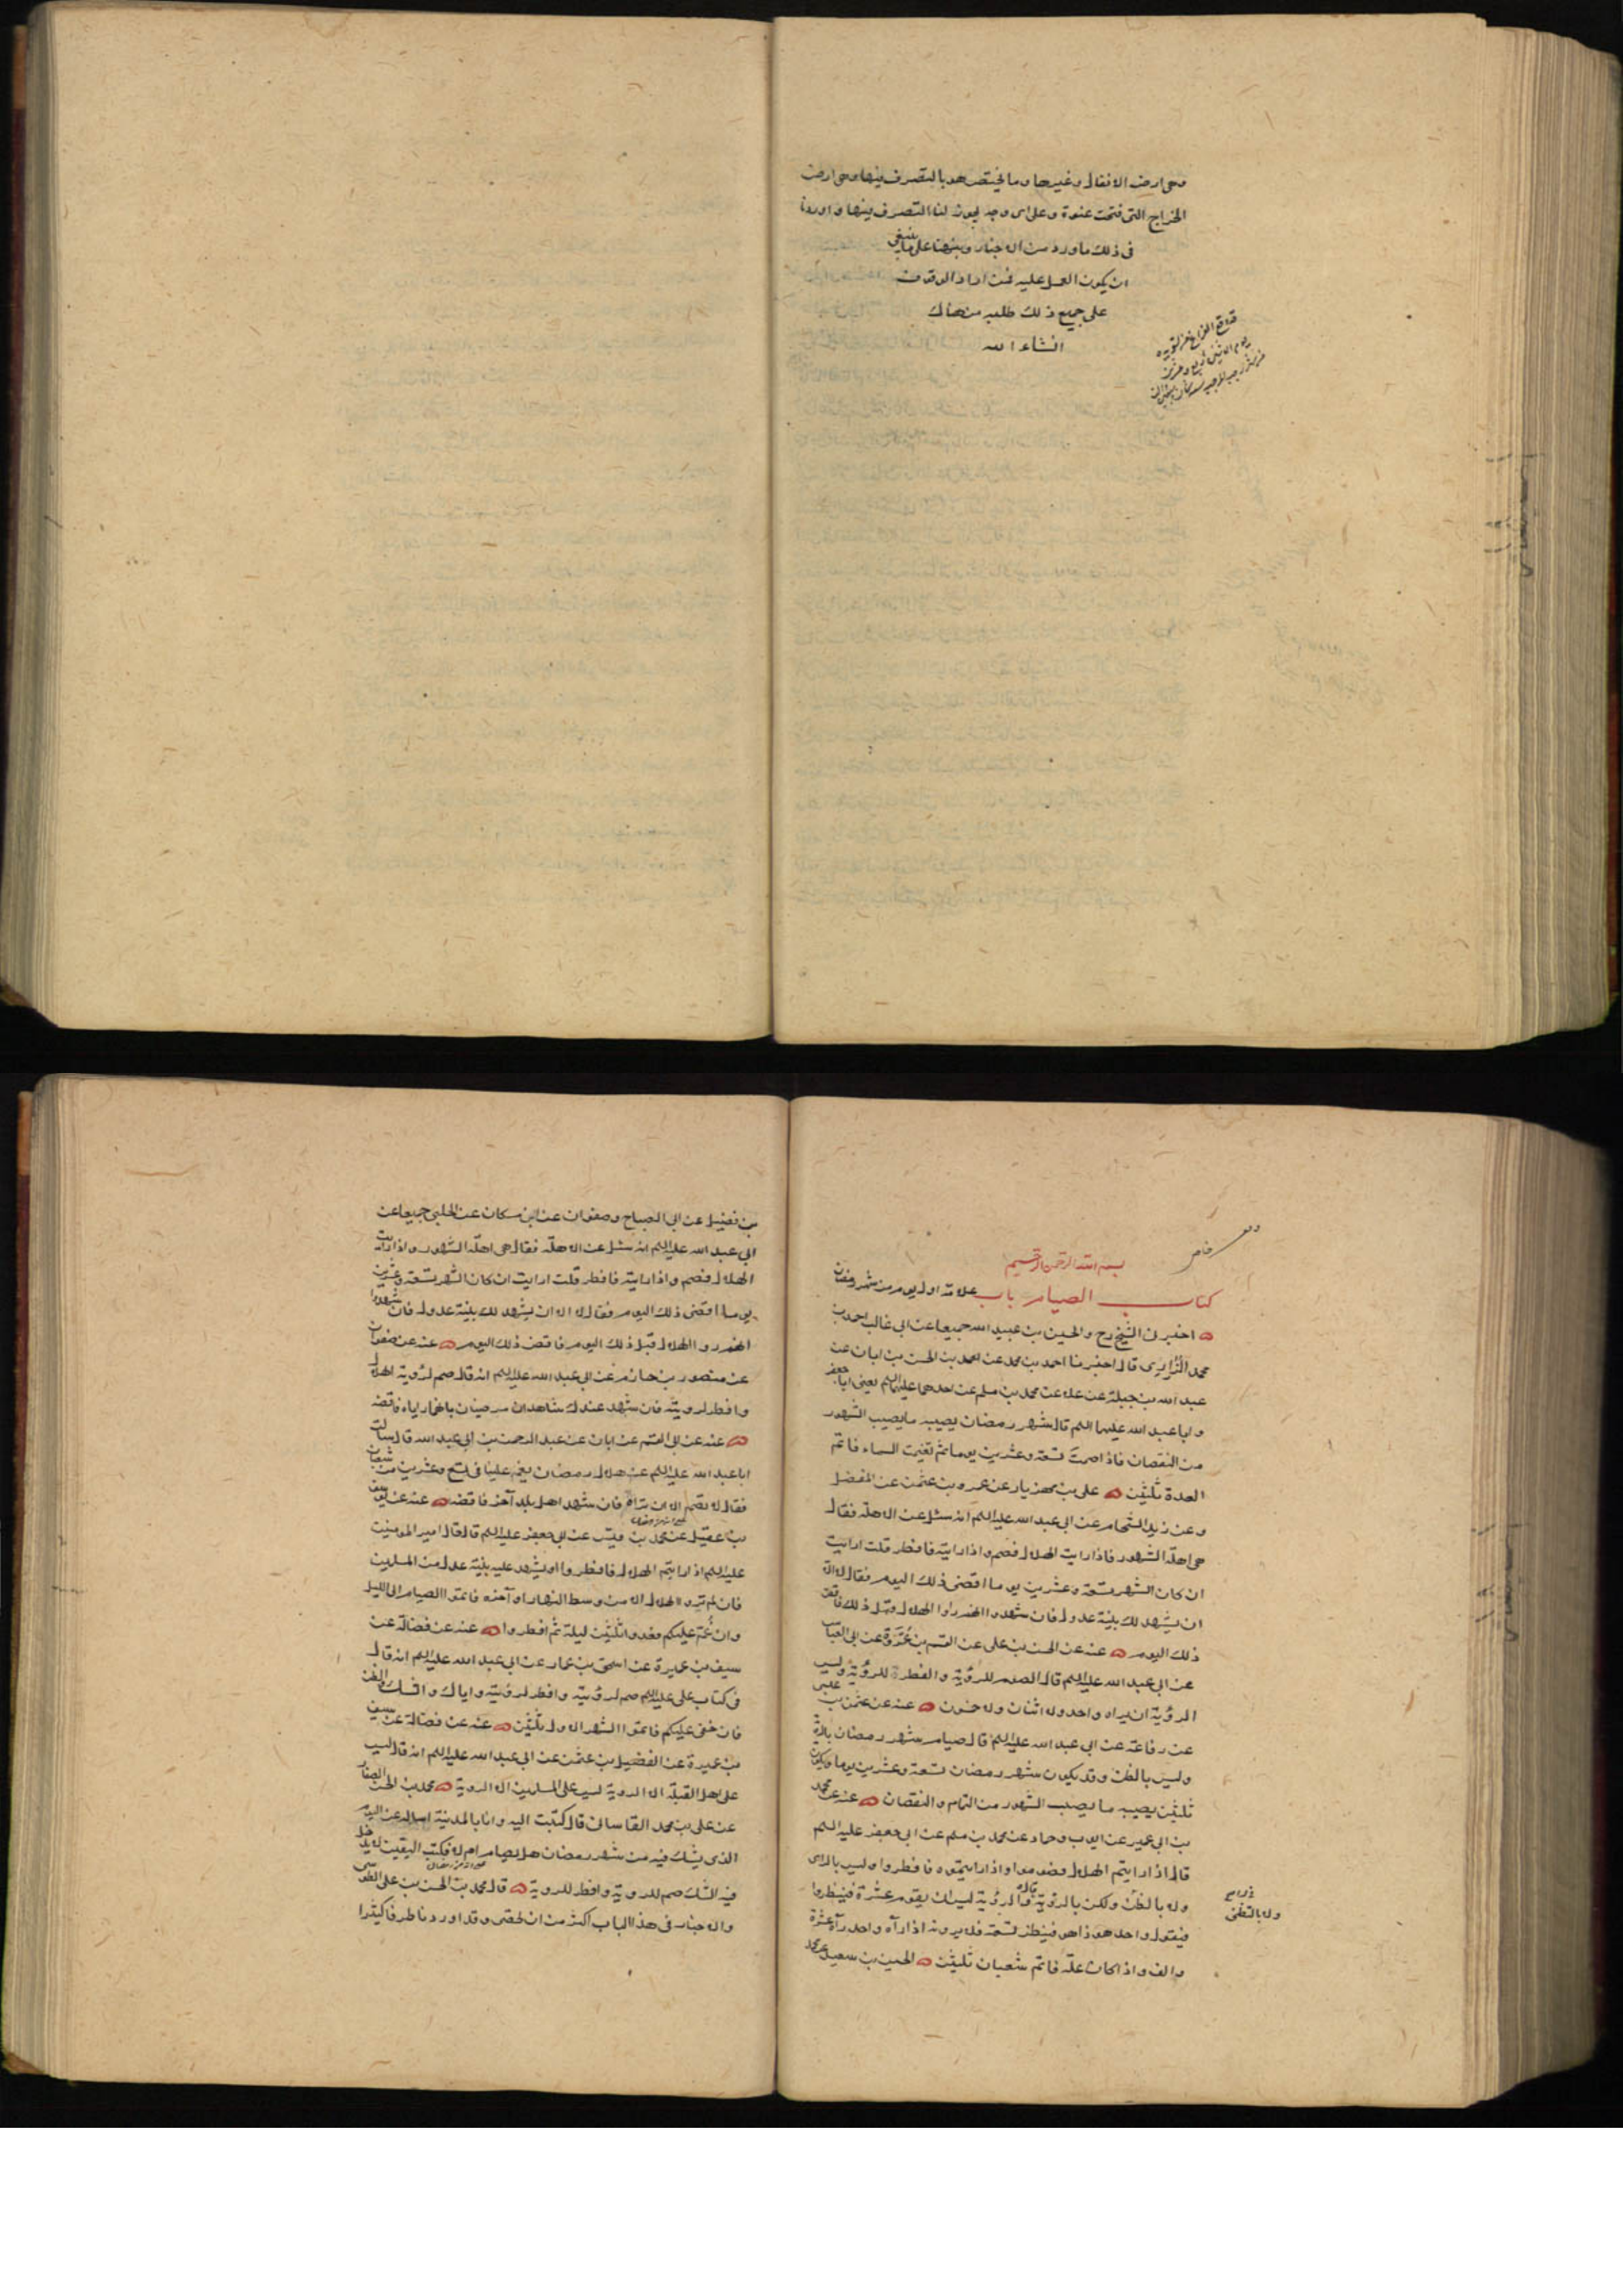 وهى ارض الانفال وغيرها وما يختص هو بالتصرف فيها وهى ارض
الخراج التى فتحت عنوة وعلى اى وجه يجوز لنا التصرف فيها واوردنا
فى ذلك ما ورد من الاخبار وبينا على ما ينبغى
ان يكون العمل عليه فمن اراد الوقوف
على جميع ذلك طلبه من هناك
انشاء الله
بسم الله الرحمن الرحيم
كتاب الصيام باب علامة اول يوم من شهر رمضان
اخبرنى الشيخ رح والحسين بن عبيد الله جميعا عن ابى غالب احمد بن
محمد الزرارى قال اخبرنا احمد بن محمد عن احمد بن الحسن بن ابان عن
عبد الله بن جبلة عن علاء عن محمد بن مسلم عن احدهما عليهما السلم يعنى ابا جعفر
وابا عبد الله عليهما السلم قال شهر رمضان يصيبه ما يصيب الشهور
من النقصان فاذا صمت تسعة وعشرين يوما ثم تغيمت السماء فاتم
العدة ثلثين على بن مهزيار عن عمرو بن عثمن عن المفضل
وعن زيد الشحام عن ابى عبد الله عليه السلم انه سئل عن الاهلة فقال
هى اهلة الشهور فاذا رايت الهلال فصم واذا رايته فافطر قلت ارايت
ان كان الشهر تسعة وعشرين يوما اقضى ذلك اليوم فقال لا الا
ان يشهد لك بينة عدول فان شهدوا انهم راوا الهلال قبل ذلك فاقض
ذلك اليوم عنه عن الحسن بن على عن القسم بن عروة عن ابى العباس
عن ابى عبد الله عليه السلم قال الصوم للرؤية والفطر للرؤية وليس
الرؤية ان يراه واحد ولا اثنان ولا خمسون عنه عن عثمن بن عيسى
عن رفاعة عن ابى عبد الله عليه السلم قال صيام شهر رمضان بالرؤية
وليس بالظن وقد يكون شهر رمضان تسعة وعشرين يوما ويكون
ثلثين يصيبه ما يصيب الشهور من التمام والنقصان عنه عن محمد
بن ابى عمير عن ايوب وحماد عن محمد بن مسلم عن ابى جعفر عليه السلم
قال اذا رايتم الهلال فصوموا واذا رايتموه فافطروا وليس بالراى
ولا بالظن ولكن بالرؤية قال والرؤية ليس ان يقوم عشرة فينظروا
ولا بالتظنى
فيقول واحد هو ذا هو فينظر تسعة فلا يرونه اذا رآه واحد رآه عشرة
والف واذا كانت علة فاتم شعبان ثلثين الحسين بن سعيد عن محمد
بن فضيل عن ابى الصباح وصفوان عن ابن مسكان عن الحلبى جميعا عن
ابى عبد الله عليه السلم انه سئل عن الاهلة فقال هى اهلة الشهور واذا رايت
الهلال فصم واذا رايته فافطر قلت ارايت ان كان الشهر تسعة وعشرين
يوما اقضى ذلك اليوم فقال لا الا ان يشهد لك بينة عدول فان شهدوا
انهم راوا الهلال قبل ذلك اليوم فاقض ذلك اليوم عنه عن صفوان
عن منصور بن حازم عن ابى عبد الله عليه السلم انه قال صم لرؤية الهلال
وافطر لرويته فان شهد عندك شاهدان مرضيان بانهما راياه فاقضه
عنه عن ابى القسم عن ابان عن عبد الرحمن بن ابى عبد الله قال سالت
ابا عبد الله عليه السلم عن هلال رمضان يغم علينا فى تسع وعشرين من شعبان
فقال لا تصم الا ان تراه فان شهد اهل بلد آخر فاقضه عنه عن يوسف
بن عقيل عن محمد بن قيس عن ابى جعفر عليه السلم قال قال امير المومنين
عليه السلم اذا رايتم الهلال فافطروا او يشهد عليه بينة عدل من المسلمين
فان لم تروا الهلال الا من وسط النهار او آخره فاتموا الصيام الى الليل
وان غم عليكم فعدوا ثلثين ليلة ثم افطروا عنه عن فضالة عن
سيف بن عميرة عن اسحق بن عمار عن ابى عبد الله عليه السلم انه قال
فى كتاب على عليه السلم صم لرؤيته وافطر لرؤيته واياك والشك والظن
فان خفى عليكم فاتموا الشهر الاول ثلثين عنه عن فضالة عن سيف
بن عميرة عن الفضيل بن عثمن عن ابى عبد الله عليه السلم انه قال ليس
على اهل القبلة الا الروية ليس على المسلمين الا الروية محمد بن الحسن الصفار
عن على بن محمد القاسانى قال كتبت اليه وانا بالمدينة اساله عن اليوم
الذى يشك فيه من شهر رمضان هل يصام ام لا فكتب اليقين لا يدخل
فيه الشك صم للروية وافطر للروية قال محمد بن الحسن بن على الطوسى
والاخبار فى هذا الباب اكثر من ان تحصى وقد اوردنا طرفا كثيرا